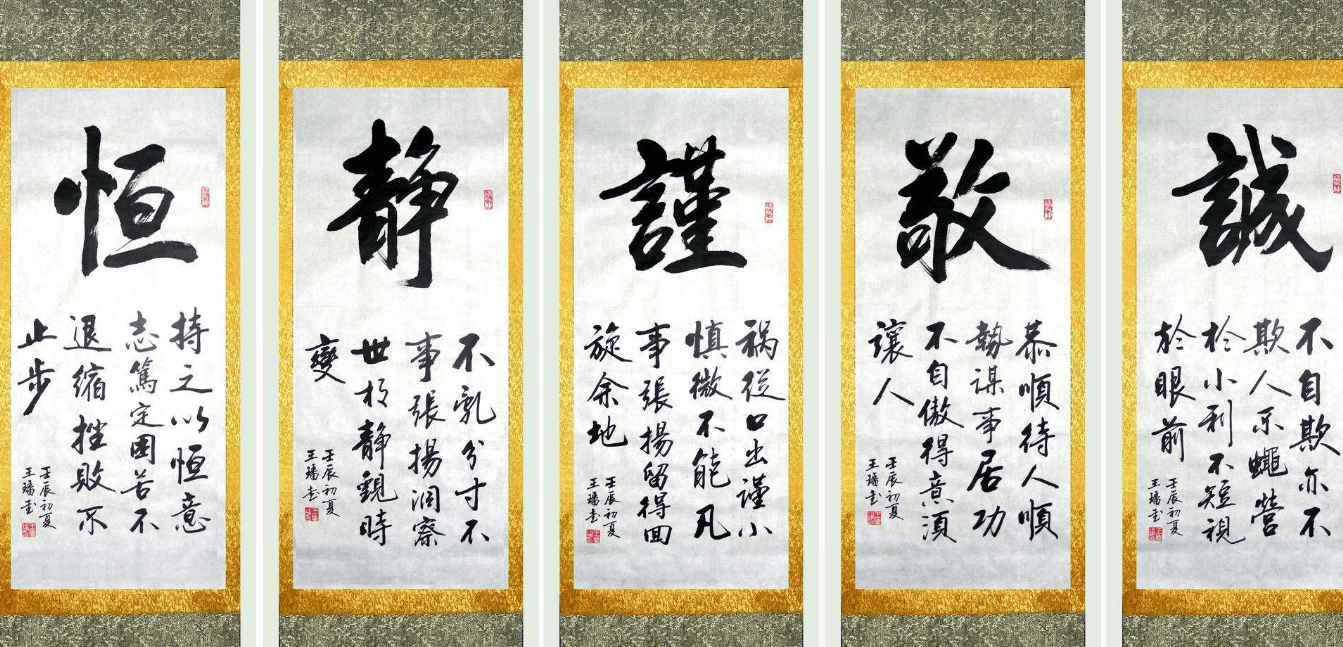 誠
不自欺亦不
欺人不蠅營
於小利不短視
於眼前
壬辰初夏
王璠書
敬
恭順待人順
勢謀事居功
不自傲得意須
讓人
壬辰初夏
王璠書
謹
祸從口出謹小
慎微不能凡
事張揚留得回
旋余地
壬辰初夏
王璠書
靜
不乱分寸不
事張揚洞察
世相靜觀時
變
壬辰初夏
王璠書
恒
持之以恒意
志篤定困苦不
退縮挫敗不
止步
壬辰初夏
王璠書